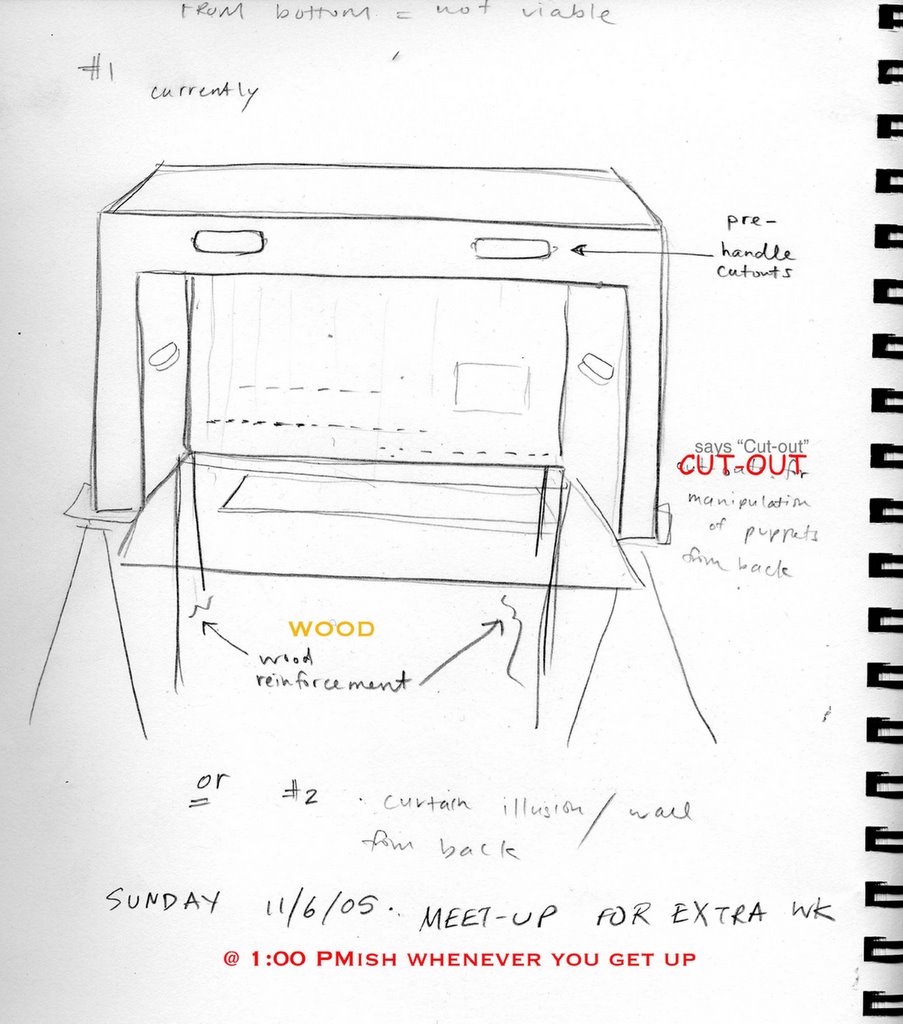 FROM bottom = not viable
#1
currently
pre-
handle
cutouts
says "Cut-out"
CUT-OUT
for
manipulation
of puppets
from back
WOOD
wood
reinforcement
or #2 . curtain illusion / wall
from back
SUNDAY 11/6/05. MEET-UP FOR EXTRA WK
@ 1:00 PMISH WHENEVER YOU GET UP